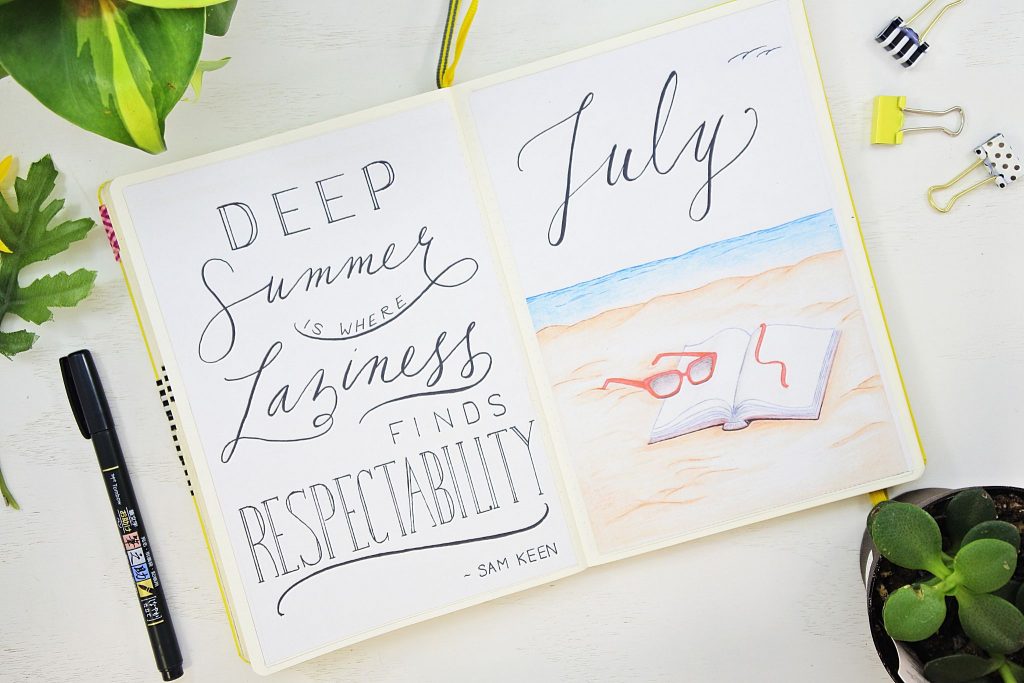 DEEP
Summer
IS WHERE
Laziness
FINDS
RESPECTABILITY
~ SAM KEEN
July